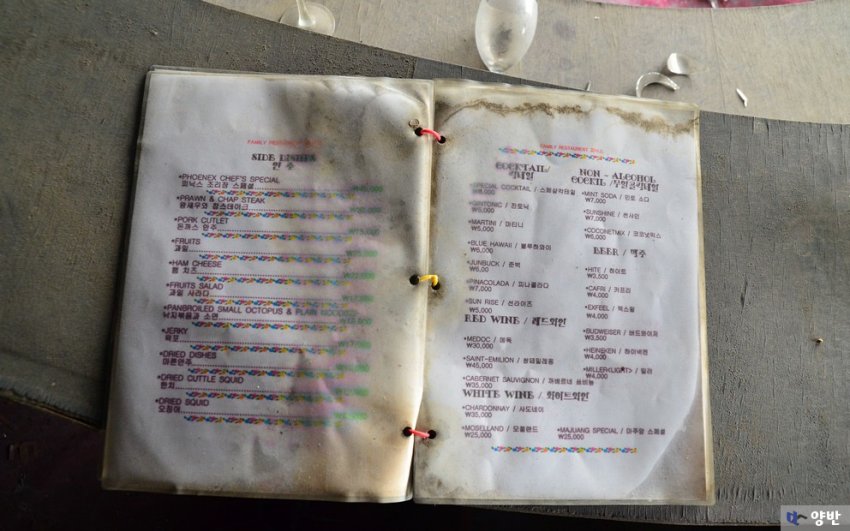 FAMILY RESTAURENT
SIDE DISHES
안 주
*PHOENEX CHEF'S SPECIAL
피닉스 조리장 스페셜
*PRAWN & CHAP STEAK
왕새우와 찹스테이크
*PORK CUTLET
돈까스 안주
*FRUITS
과일
*HAM CHEESE
햄 치즈
*FRUITS SALAD
과일 사라다
*PANBROILED SMALL OCTOPUS & PLAIN NOODLE
낙지볶음과 소면
*JERKY
육포
*DRIED DISHES
마른안주
*DRIED CUTTLE SQUID
한치
*DRIED SQUID
오징어
FAMILY RESTAURENT
COCKTAIL/
칵테일
*SPECIAL COCKTAIL / 스페샬칵테일
*GINTONIC / 진토닉
₩5,000
*MARTINI / 마티니
₩5,000
*BLUE HAWAII / 블루하와이
₩6,000
*JUNBUCK / 준벅
₩6,00
*PINACOLADA / 피나콜라다
₩7,000
*SUN RISE / 선라이즈
₩5,000
RED WINE / 레드와인
*MEDOC / 메독
₩30,000
*SAINT-EMILION /
₩45,000
*CABERNET SAUVIGNON /
₩35,000
WHITE WINE / 화이트와인
*CHARDONNAY / 샤도네이
₩35,000
*MOSELLAND / 모젤란드
₩25,000
NON - ALCOHOL
COCKTIL /무알콜칵테일
*MINT SODA / 민트 소다
₩7,000
*SUNSHINE / 썬샤인
₩7,000
*COCONETMIX / 코코넛믹스
₩6,000
BEER / 맥주
*HITE / 하이트
₩3,500
*CAFRI / 카프리
₩4,000
*EXFEEL / 엑스필
₩4,000
*BUDWEISER / 버드와이저
₩3,500
*HEINEKEN / 하이네켄
₩4,000
*MILLER<LIGHT> / 밀러
₩4,000
*MAJUANG SPECIAL / 마주앙 스페셜
₩25,000
양반